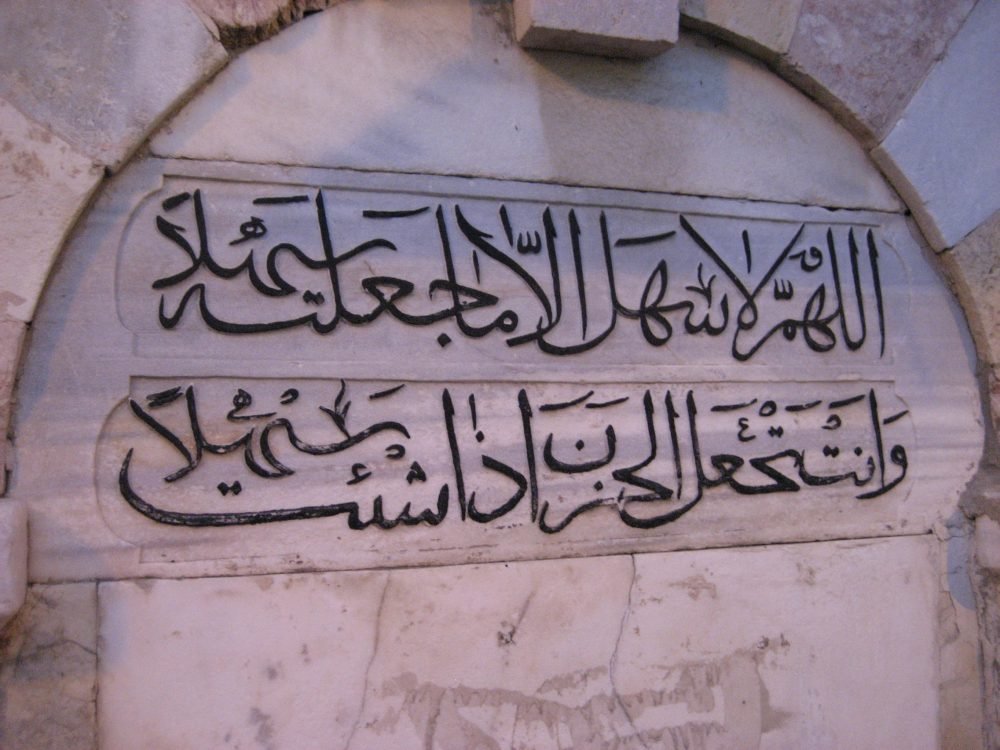 اللهم لا سهل الا ما جعلته سهلا
وانت تجعل الحزن اذا شئت سهيلاً